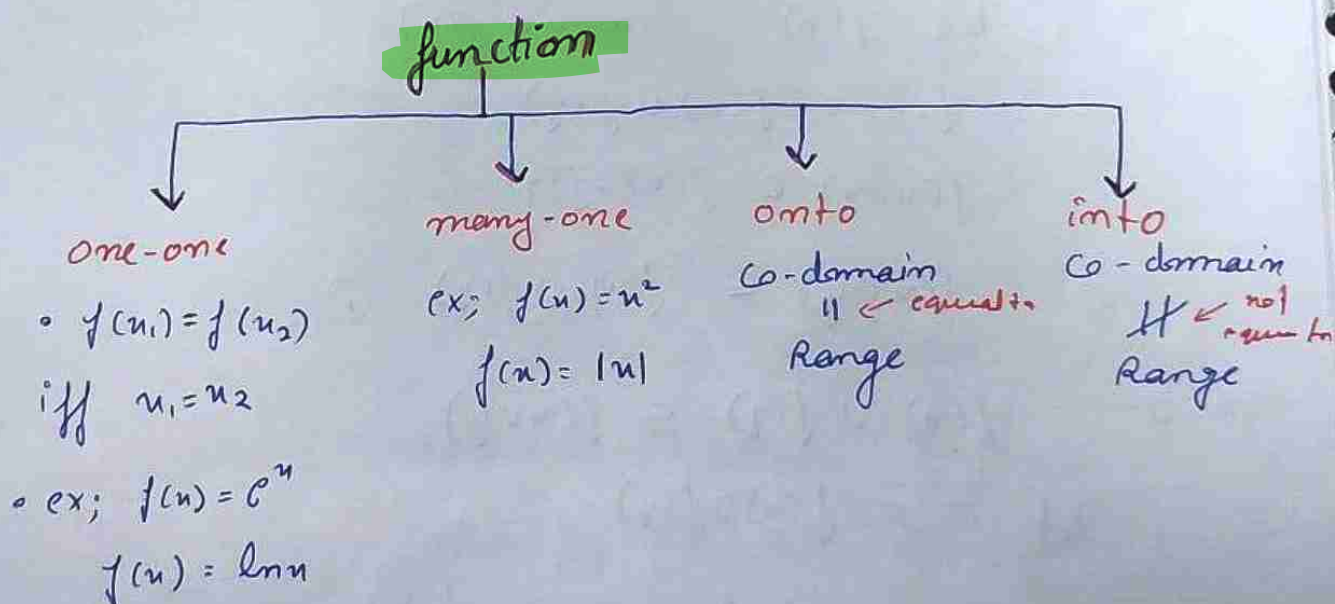 function
one-one
• f(x₁) = f(x₂)
iff x₁ = x₂
• ex; f(x) = eˣ
f(x) = lnx
many-one
ex; f(x) = x²
f(x) = |x|
onto
Co-domain
|| ← equal to
Range
into
Co-domain
≠ ← not
equal to
Range